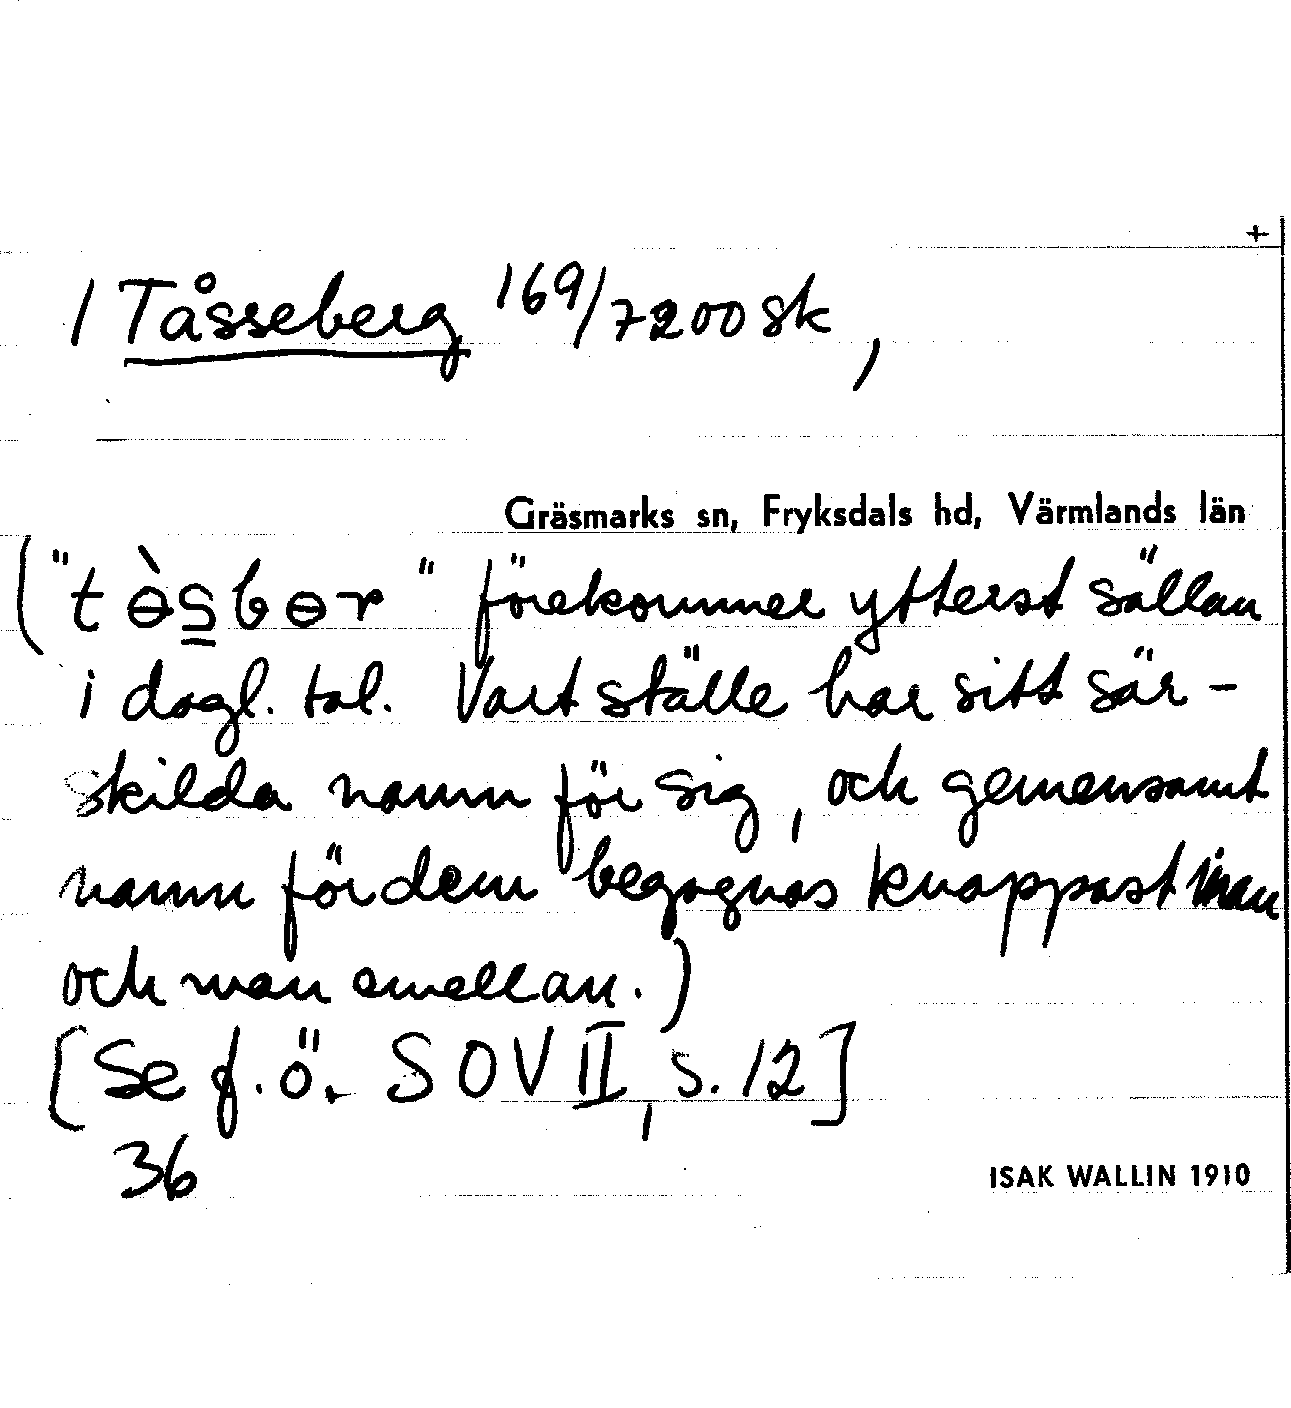 +
1 Tåsseberg 169/7200 sk,
Gräsmarks sn, Fryksdals hd, Värmlands län
("tɵ̀s̲bɵr" förekommer ytterst sällan
i dagl. tal. Vart ställe har sitt sär-
skilda namn för sig, och gemensamt
namn för dem begagnas knappast man
och man emellan.)
[Se f.ö. SOV II, s. 12]
36
ISAK WALLIN 1910